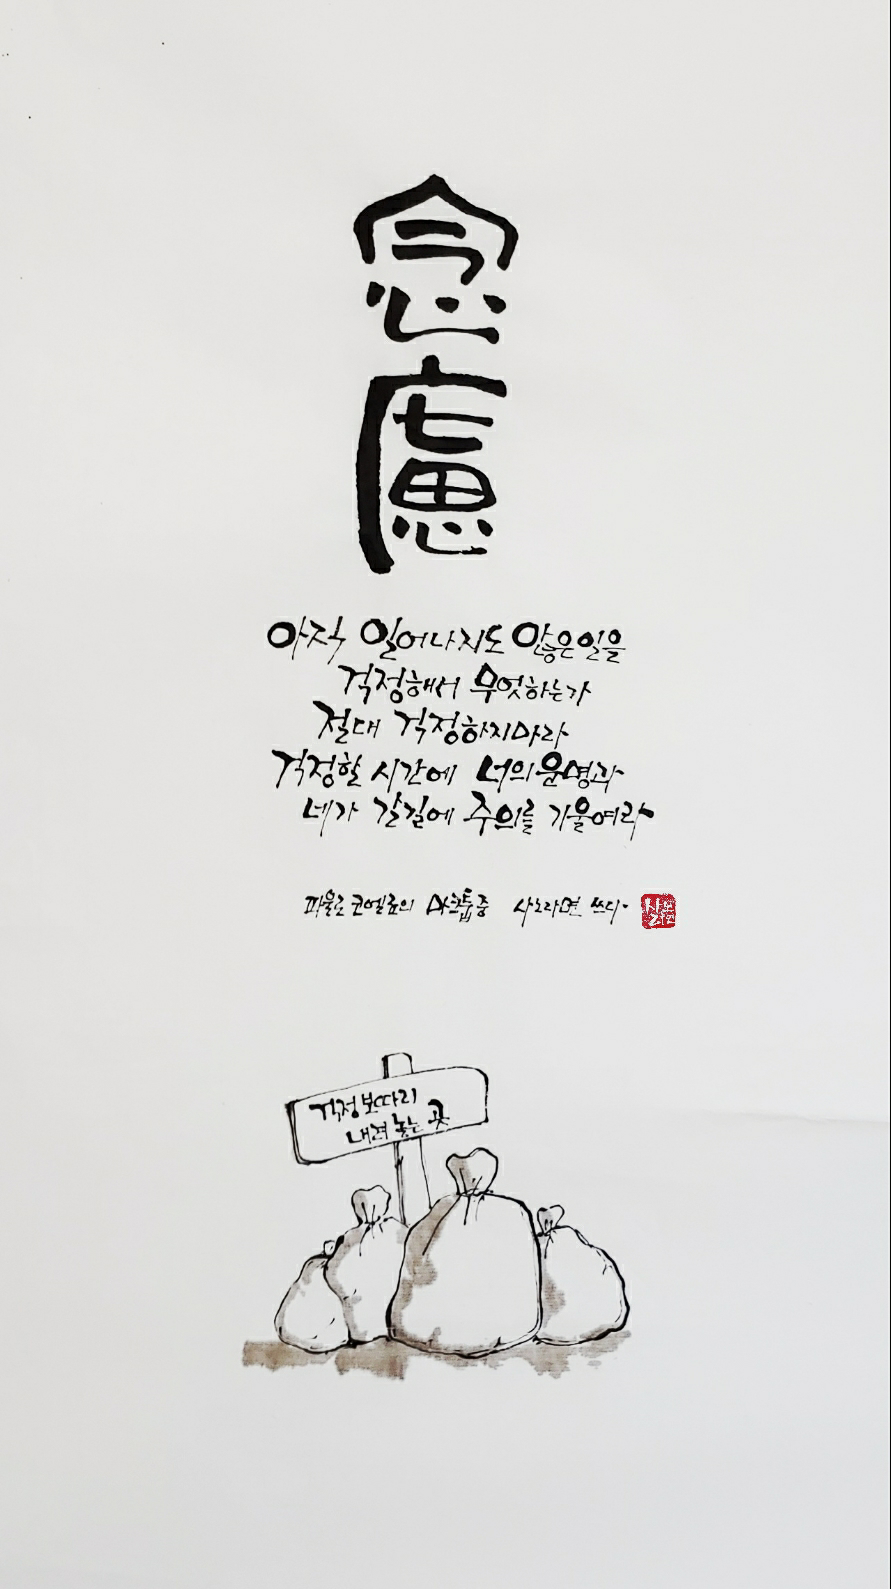 念
慮
아직 일어나지도 않은 일을
걱정해서 무엇하는가
절대 걱정하지마라
걱정할 시간에 너의 운명과
네가 갈길에 주의를 기울여라
파울로 코엘료의 마크툽 중 사노라면 쓰다.
걱정보따리
내려 놓는 곳